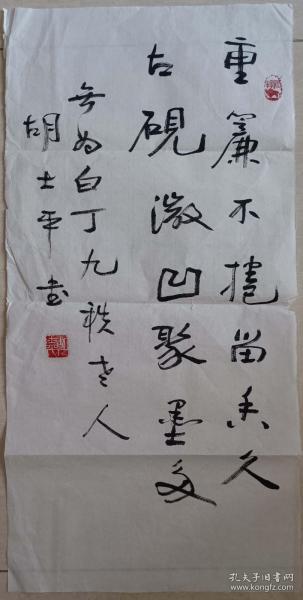 重簾不捲留香久
古硯微凹聚墨多
無為白丁九秩老人
胡士平书
孔夫子旧书网